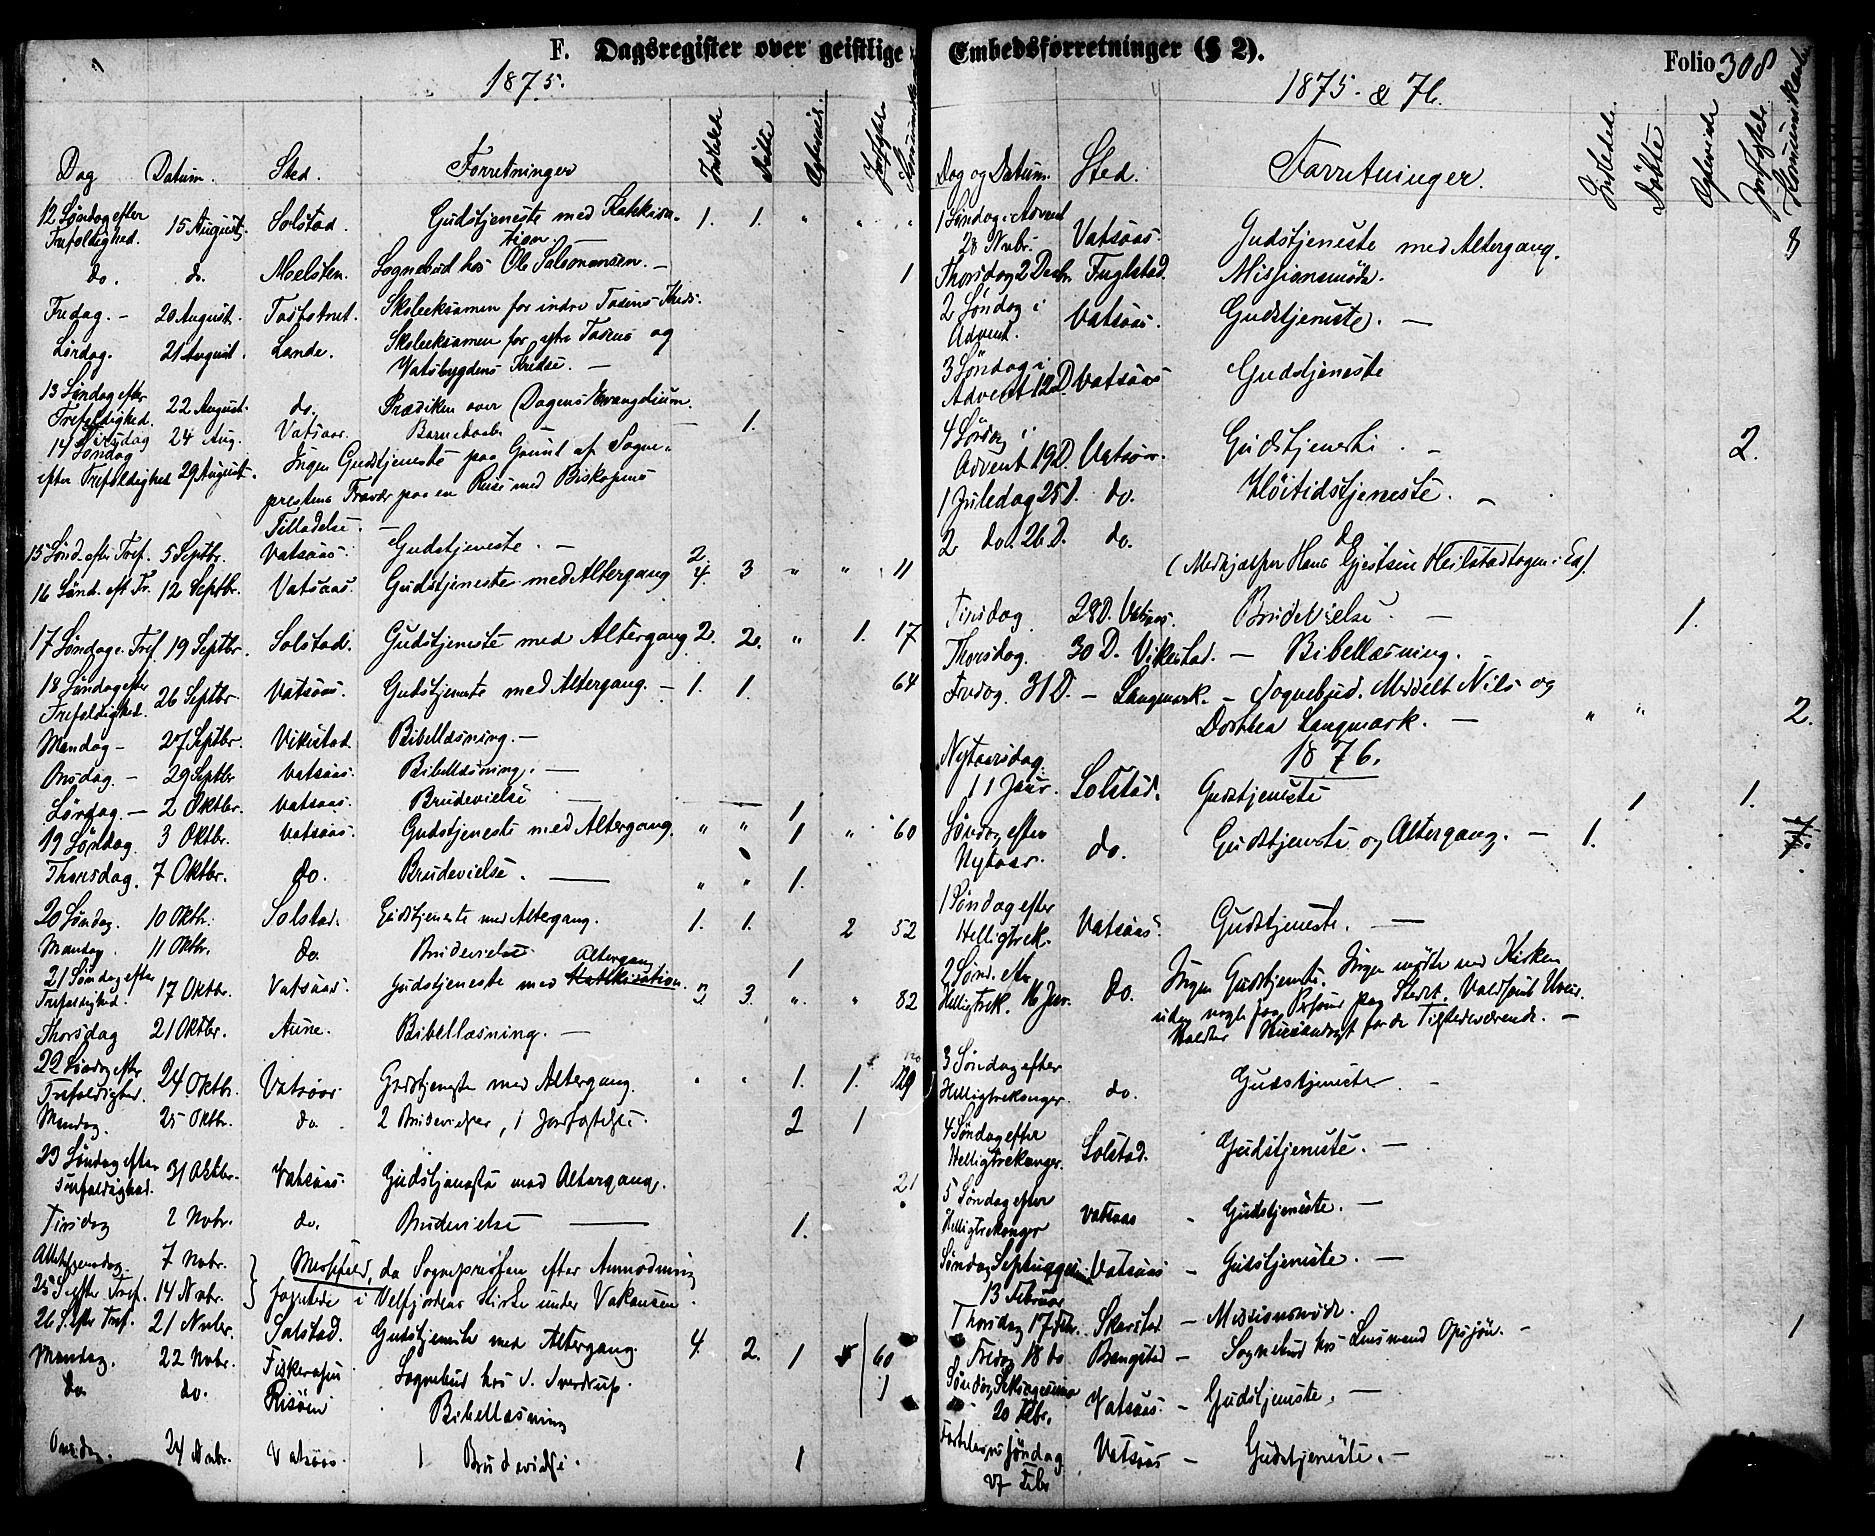 F. Dagsregister over geistlige
1875.
Dag Datum. Sted. Forretninger Døbte
12 Søndag efter Trefoldighed. 15 August. Solstad. Gudstjeneste med Katekisa- 1. 1. " " "
tion
do. d. Moelsten. Sognebud hos Ole Salomonsen. — 1
Fredag. — 20 August. Skoleeksamen for indre Tosens Kreds.
Lørdag. 21 August. Lande. Skoleeksamen for ytre Tosens og
Vatsbygdens Kredse. —
13 Søndag efter Trefoldighed. 22 August. do. Prædiken over Dagens Evangelium.
24 Aug. Vatsaas. Barnedaab. — 1.
14 Søndag efter Trefoldighed 29 August. Ingen Gudstjeneste paa Grund af Sogne-
prestens Fravær paa en Reise med Biskopens
Tilladelse. —
15 Sønd. efter Tref. 5 Septbr. Vatsaas. Gudstjeneste. — 2.
16 Sønd. eft Tr. 12 Septbr. Vatsaas. Gudstjeneste med Altergang 4. 3 " " 11
17 Søndag e. Tref. 19 Septbr. Solstad. Gudstjeneste med Altergang 2. 2. " 1. 17
18 Søndag efter Trefoldighed. 26 Septbr. Vatsaas. Gudstjeneste med Altergang. — 1. 1. 64
Mandag — 27 Septbr. Vikestad Bibellæsning. —
Onsdag. — 29 Septbr Vatsaas. Bibellæsning. —
Lørdag. — 2 Oktbr. Vatsaas. Brudevielse — 1.
19 Søndag 3 Oktbr. Vatsaas. Gudstjeneste med Altergang. " " 1 " 60
Thorsdag. 7 Oktbr. do. Brudevielse. — " " 1.
20 Søndag. 10 Oktbr. Solstad. Gudstjeneste med Altergang. 1. 1. 2 52
Mandag. 11 Oktbr. do. Brudevielse 1
21 Søndag efter Trefoldighed. 17 Oktbr. Vatsaas. Gudstjeneste med Altergang Katekisation. 3 3. " " 82
Thorsdag 21 Oktbr. Aune. Bibellæsning. —
22 Søndag efter Trefoldighed. 24 Oktbr. Vatsaas Gudstjeneste med Altergang. " " 1. 1. 129
Mandag. 25 Oktbr. do. 2 Brudevielser, 1 Jordfæstelse. 2 1
23 Søndag efter Trefoldighed. 31 Oktbr. Vatsaas. Gudstjeneste med Altergang. 21
Tirsdag 2 Novbr. do. Brudevielse — 1.
Allehelgensdag. 7 Novbr. Messefald, da Sognepresten efter Anmodning
25 S. efter Tref. 14 Novbr. forrettede i Velfjordens Kirke under Vakansen.
26 S. efter Tref. 21 Novbr. Solstad. Gudstjeneste med Altergang. 4. 2. 1 60
Mandag. 22 Novbr. Sognebud hos S. Sverdrup. 1
do do. Risøen Bibellæsning
Onsdag. 24 Novbr. Vatsaas. 1 Brudevielse. 1
Embedsforretninger (§ 2).
Folio 308
1875 & 76.
Dag og Datum. Sted. Forretninger. Indledede. Døbte Jordfæstede Kommunikanter
1 Søndag i Advent 28 Nvbr. Vatsaas. Gudstjeneste med Altergang. 8
Thorsdag 2 Decbr. Fuglstad. Missionsmøde.
2 Søndag i Advent. Vatsaas. Gudstjeneste. —
3 Søndag i Advent 12 D. Vatsaas Gudstjeneste
4 Søndag i Advent 19 D. Vatsaas. Gudstjeneste. — 2.
1 Juledag 25 D. do. Høitidstjeneste. —
2 do. 26 D. do. do
(Medhjælper Hans Gjertsen Heilstadtogen i Ed).
Tirsdag 28 D. Vatsaas. Brudevielse. — 1.
Thorsdag. 30 D. Vikestad. — Bibellæsning. —
Fredag. 31 D. — Langmark. — Sognebud. Meddelt Nils og
Dorthea Langmark. — " " 2.
1876.
Nytaarsdag. 1 Janr. Solstad. Gudstjeneste 1 1.
Søndag efter Nytaar. do. Gudstjeneste og Altergang. — 1.
1 Søndag efter Helligtrek. Vatsaas. Gudstjeneste. —
2 Sønd. eftr Helligtrek. 16 Jan. do. Ingen Gudstjeneste. Ingen mødte ved Kirken
uden nogle faa Personer paa Stedet. Voldsomt Uveir.
Holdtes Husandagt for de Tilstedeværende. —
3 Søndag efter Helligtrekonger. do. Gudstjeneste —
4 Søndag efter Helligtrekonger. Solstad. Gudstjeneste. —
5 Søndag efter Helligtrekonger Vatsaas — Gudstjeneste. —
Søndag Septuagesima 13 Februar Vatsaas — Gudstjeneste. —
Thorsdag 17 Febr. Skarstad — Missionsmøde.
Fredag 18 do Brangstad — Sognebud hos Lensmand Opsjøn. — 1
Søndag Seksagesima 20 Febr. Vatsaas. — Gudstjeneste. —
Fastelavns Søndag 27 Febr Vatsaas — Gudstjeneste. —